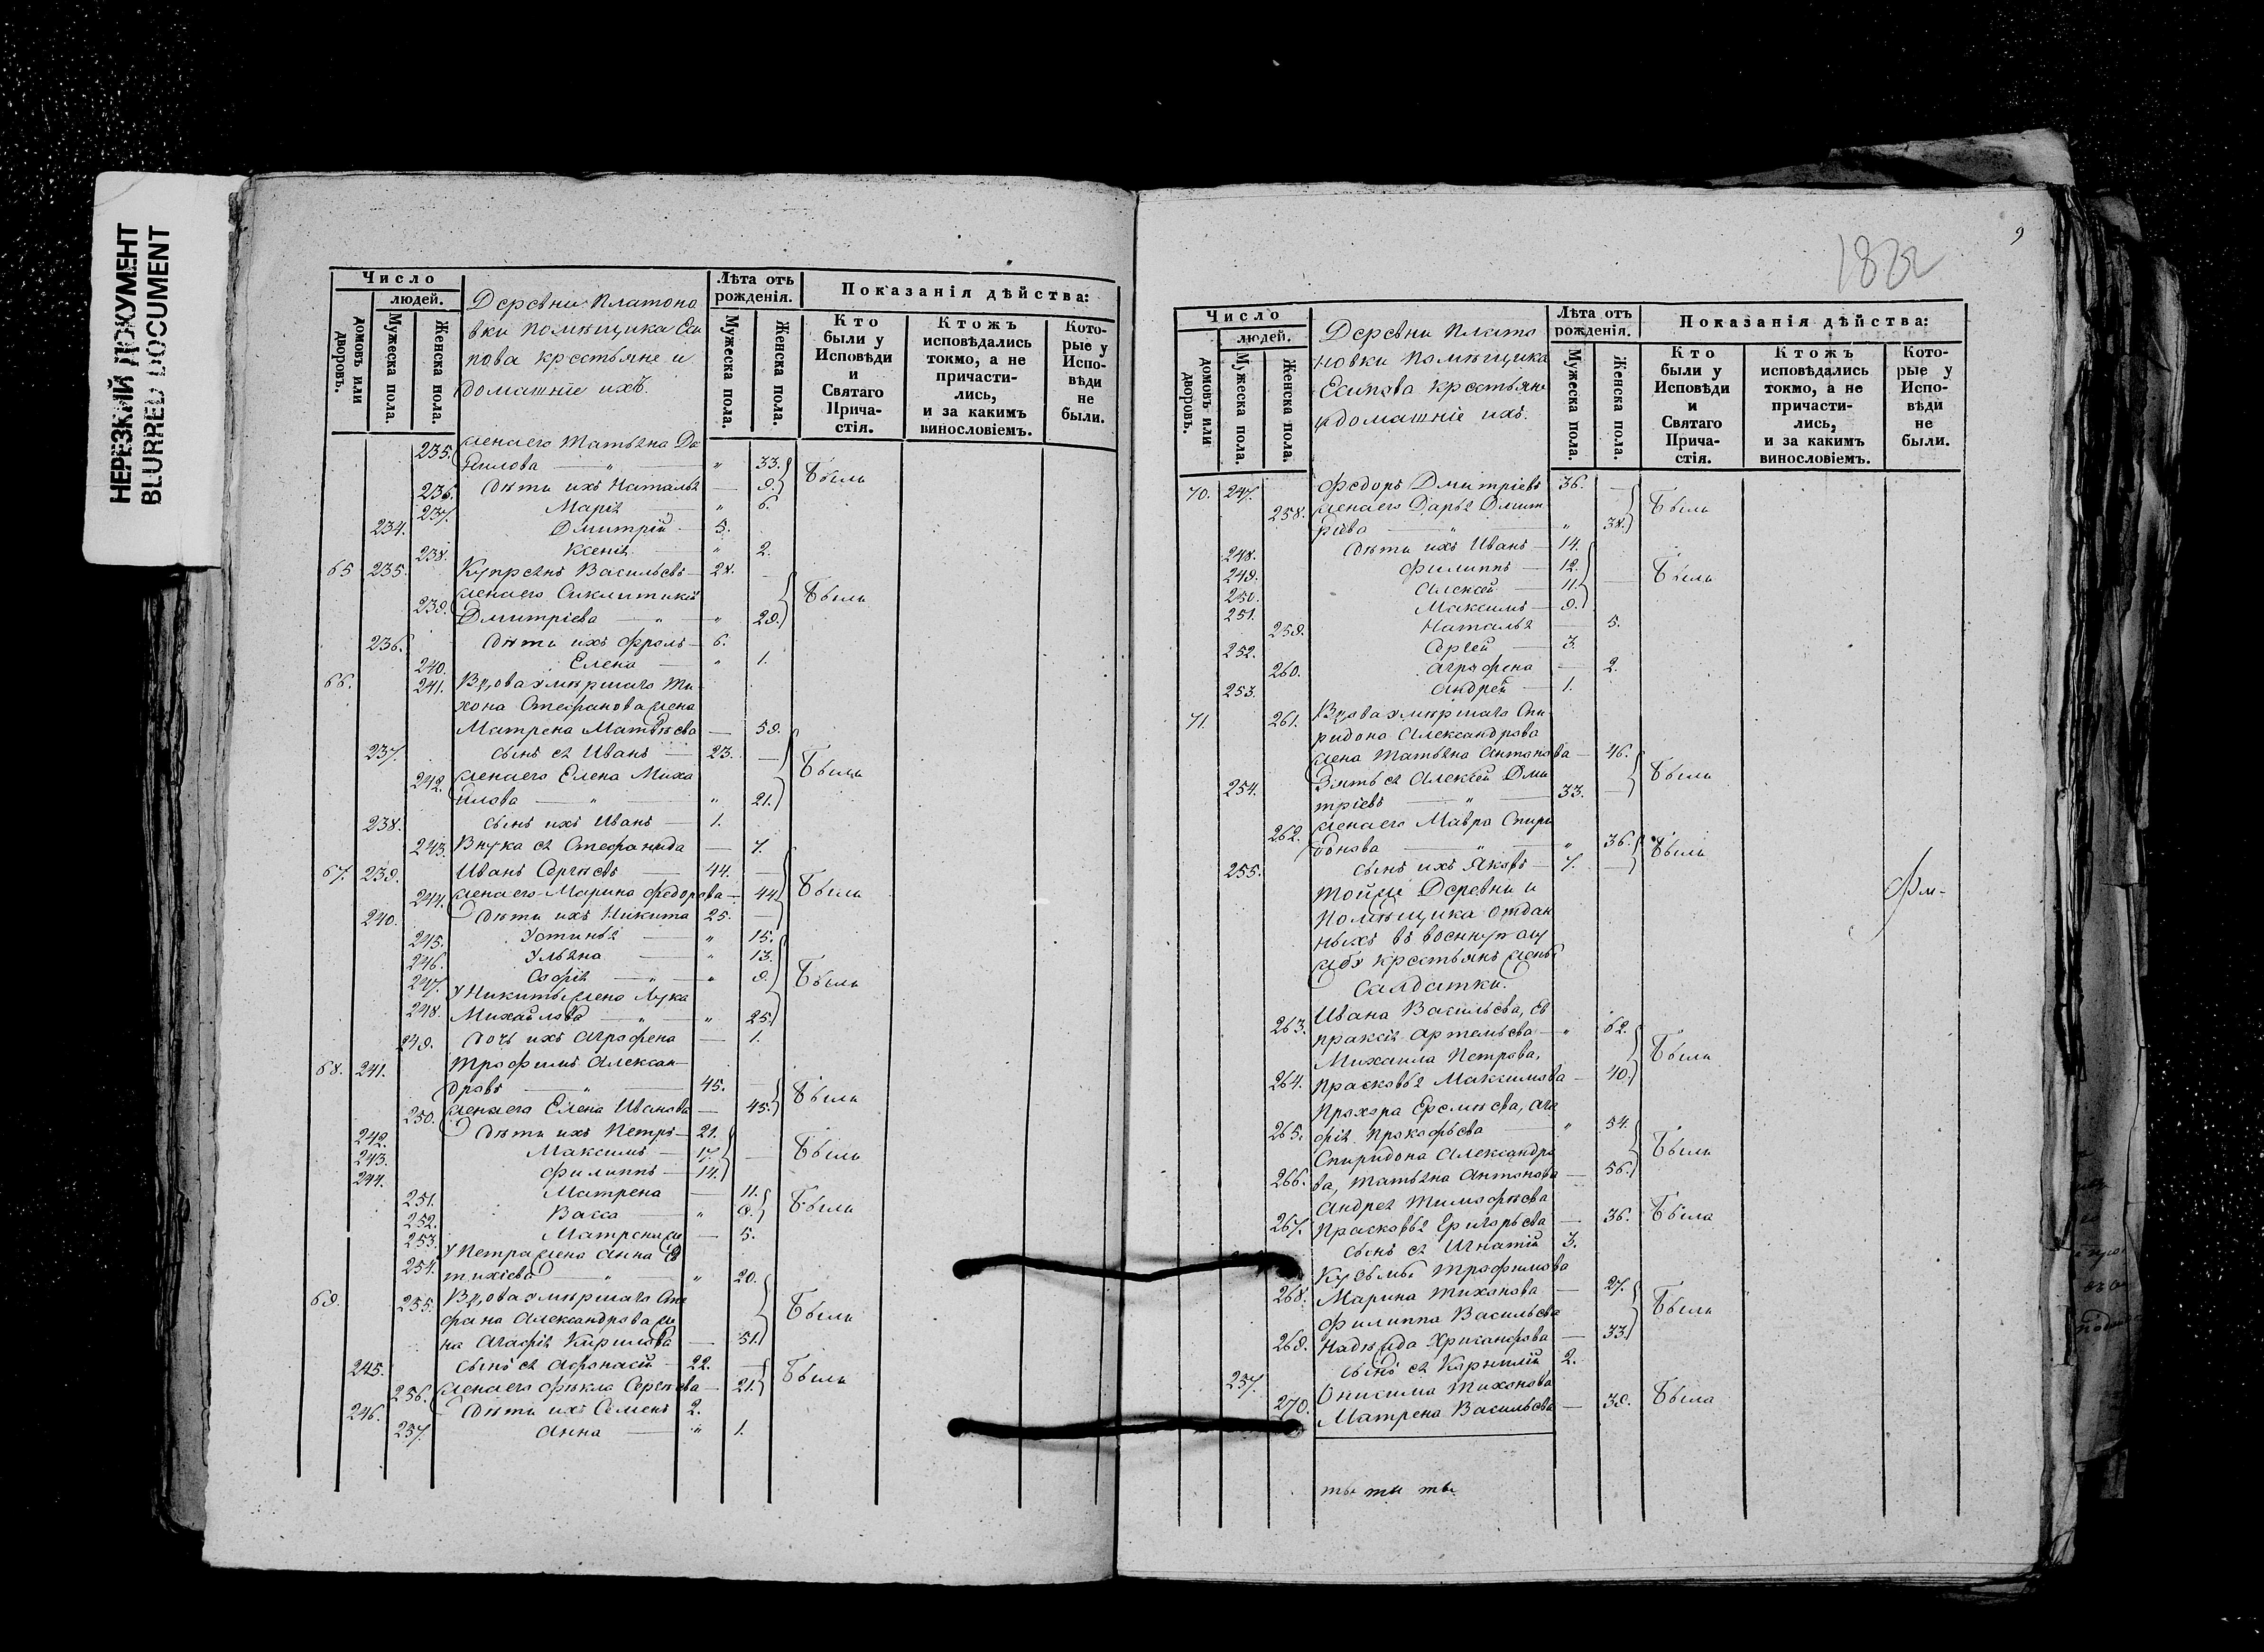 НЕРЕЗКИЙ ДОКУМЕНТ
BLURRED DOCUMENT
Число
людей.
домовъ или дворовъ.
Мужеска пола.
Женска пола.
Деревни Платоно
вки помѣщика Еси
пова крестьяне и
домашніе ихъ.
Лѣта отъ рожденія.
Мужеска пола.
Женска пола.
Показанія дѣйства:
Кто были у Исповѣди и Святаго Прича-стія.
Ктожъ исповѣдались токмо, а не причасти-лись, и за какимъ винословіемъ.
Кото-рые у Испо-вѣди не были.
235. Жена его Татьяна Да
нилова — " — " 33. Были
236. Дѣти ихъ Наталья — 9.
237. Марія — " 6.
234. Дмитрій 5.
238. Ксенія — " 2.
65 235. Купреянъ Васильевъ — 28. —
Жена его Сиклитикія
239. Дмитріева — " — " 29. Были
236. Дѣти ихъ Фролъ — 6.
240. Елена — " 1.
66. 241. Вдова умѣршаго Ти
хона Стефанова жена
Матрена Матвѣева — 59.
237. Сынъ ея Иванъ — 23. —
242. Жена его Елена Миха
йлова — " — " 21. Были
238. Сынъ ихъ Иванъ — 1.
243. Внука ея Стефанида — 7.
67. 239. Иванъ Сергѣевъ — 44. —
244. Жена его Марина Федорова — 44. Были
240. Дѣти ихъ Никита 25. —
245. Устинья — " 15.
246. Ульяна — " 13.
247. Софія — " — " 9. Были
У Никиты жена Лука
248. Михайлова — " — " 25.
249. Дочь ихъ Агрофена — 1.
68. 241. Трофимъ Алексан
дровъ — " — 45. —
250. Жена его Елена Иванова — 45. Были
242. Дѣти ихъ Петръ — 21.
243. Максимъ — 17. — Были
244. Филиппъ — 14.
251. Матрена — 11.
252. Васса — " 9. Были
253. Матрена — 5.
У Петра жена Анна Ев
254. тихіева — " — " 20.
69. 255. Вдова умѣршаго Сте
фана Александрова же
на Агафія Кирилова — 51. Были
245. Сынъ ея Афонасій — 22. —
256. Жена его Фѣкла Сергѣева — 21. Были
246. Дѣти ихъ Семенъ 2.
257. Анна — " 1.
1822
9
Число
людей.
домовъ или дворовъ.
Мужеска пола.
Женска пола.
Деревни Плато
новки помѣщика
Есипова крестьяне
и домашніе ихъ.
Лѣта отъ рожденія.
Мужеска пола.
Женска пола.
Показанія дѣйства:
Кто были у Исповѣди и Святаго Прича-стія.
Ктожъ исповѣдались токмо, а не причасти-лись, и за какимъ винословіемъ.
Кото-рые у Испо-вѣди не были.
70. 247. Федоръ Дмитріевъ 36. —
258. Жена его Дарья Дмит
ріева — " — " 38. Были
248. Дѣти ихъ Иванъ — 14.
249. Филиппъ — 12.
250. Алексей — 11. — Были
251. Максимъ — 9.
259. Наталья — 5.
252. Сергей — 3.
260. Агрофена — 2.
253. Андрей — 1.
71. 261. Вдова умѣршаго Спи
ридона Александрова
жена Татьяна Антонова — 46.
254. Зять ея Алексей Дми
тріевъ — " — 33. — Были
262. Жена его Мавра Спири
донова — " — " 36. Были
255. Сынъ ихъ Яковъ — 7. —
Тойже Деревни и
помѣщика отдан
ныхъ въ военную слу
жбу крестьянъ жены
Салдатки.
Ивана Васильева, Ев
263. праксія Артемьева — " 62.
Михаила Петрова, Были
264. Прасковья Максимова — 40.
Прохора Еремѣева, Ага
265. фія Прокофьева — " 54.
Спиридона Александро Были
266. ва, Татьяна Антонова — 56.
Андрея Тимофѣева
267. Прасковья Григорьева — 36. Была
Сынъ ея Игнатій 3.
Кузьмы Трофимова
268. Марина Тихонова — 27.
Филиппа Васильева Были
269. Надѣжда Хрисанфова — 33.
257. Сынъ ея Корнилій 2.
Онисима Тихонова
270. Матрена Васильева — 39. Была
ты ты ты